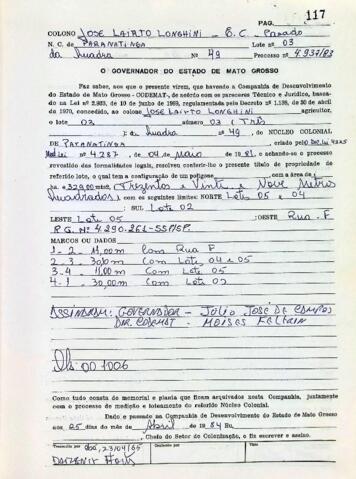 PAG. 117
COLONO JOSE LAIRTO LONGHINI - E.C. Parado
N. C. de PARANATINGA Lote nº 03
da Quadra Nº 49 Processo nº 4.937/83
O GOVERNADOR DO ESTADO DE MATO GROSSO
Faz saber, aos que o presente virem, que havendo a Companhia de Desenvolvimento
do Estado de Mato Grosso - CODEMAT -, de acordo com os pareceres Técnico e Jurídico, basea-
do na Lei nº 2.923, de 10 de junho de 1969, regulamentada pelo Decreto nº 1.138, de 30 de abril
de 1970, concedido, ao colono JOSE LAIRTO LONGHINI agricultor,
o lote 03 número 03 (Três
) da Quadra nº 49, DO NÚCLEO COLONIAL
DE PARANATINGA, criado pelo
Lei 4.287, de 04 de Maio de 1981, e achando-se o processo
revestido das formalidades legais, resolveu conferir-lhe o presente título de propriedade do
referido lote, o qual tem a configuração de um polígono com a área de
329,00 m² (Trezentos e Vinte e Nove Metros
Quadrados) e com os seguintes limites: NORTE Lotes 05 e 04
; SUL Lote 02
LESTE Lote 05 ; OESTE Rua - F
R.G. Nº 4.290.261-SSP/SP.
MARCOS OU DADOS
1 - 2 - 11,00 m Com Rua F
2 - 3 - 30,00 m Com Lote 04 e 05
3 - 4 - 11,00 m Com Lote 05
4 - 1 - 30,00 m Com Lote 02
ASSINARAM: GOVERNADOR - JULIO JOSÉ DE CAMPOS
DIR. CODEMAT - MOISES FELTRIN
001006
Como tudo consta do memorial e planta que ficam arquivados nesta Companhia, juntamente
com o processo de medição e loteamento do referido Núcleo Colonial.
Dado e passado na Companhia de Desenvolvimento do Estado de Mato Grosso
aos 25 dias do mês de Abril de 1984 Eu,
, Chefe do Setor de Colonização, o fiz escrever e assino.
Transcrito por Conferido por Visto
23/04/85